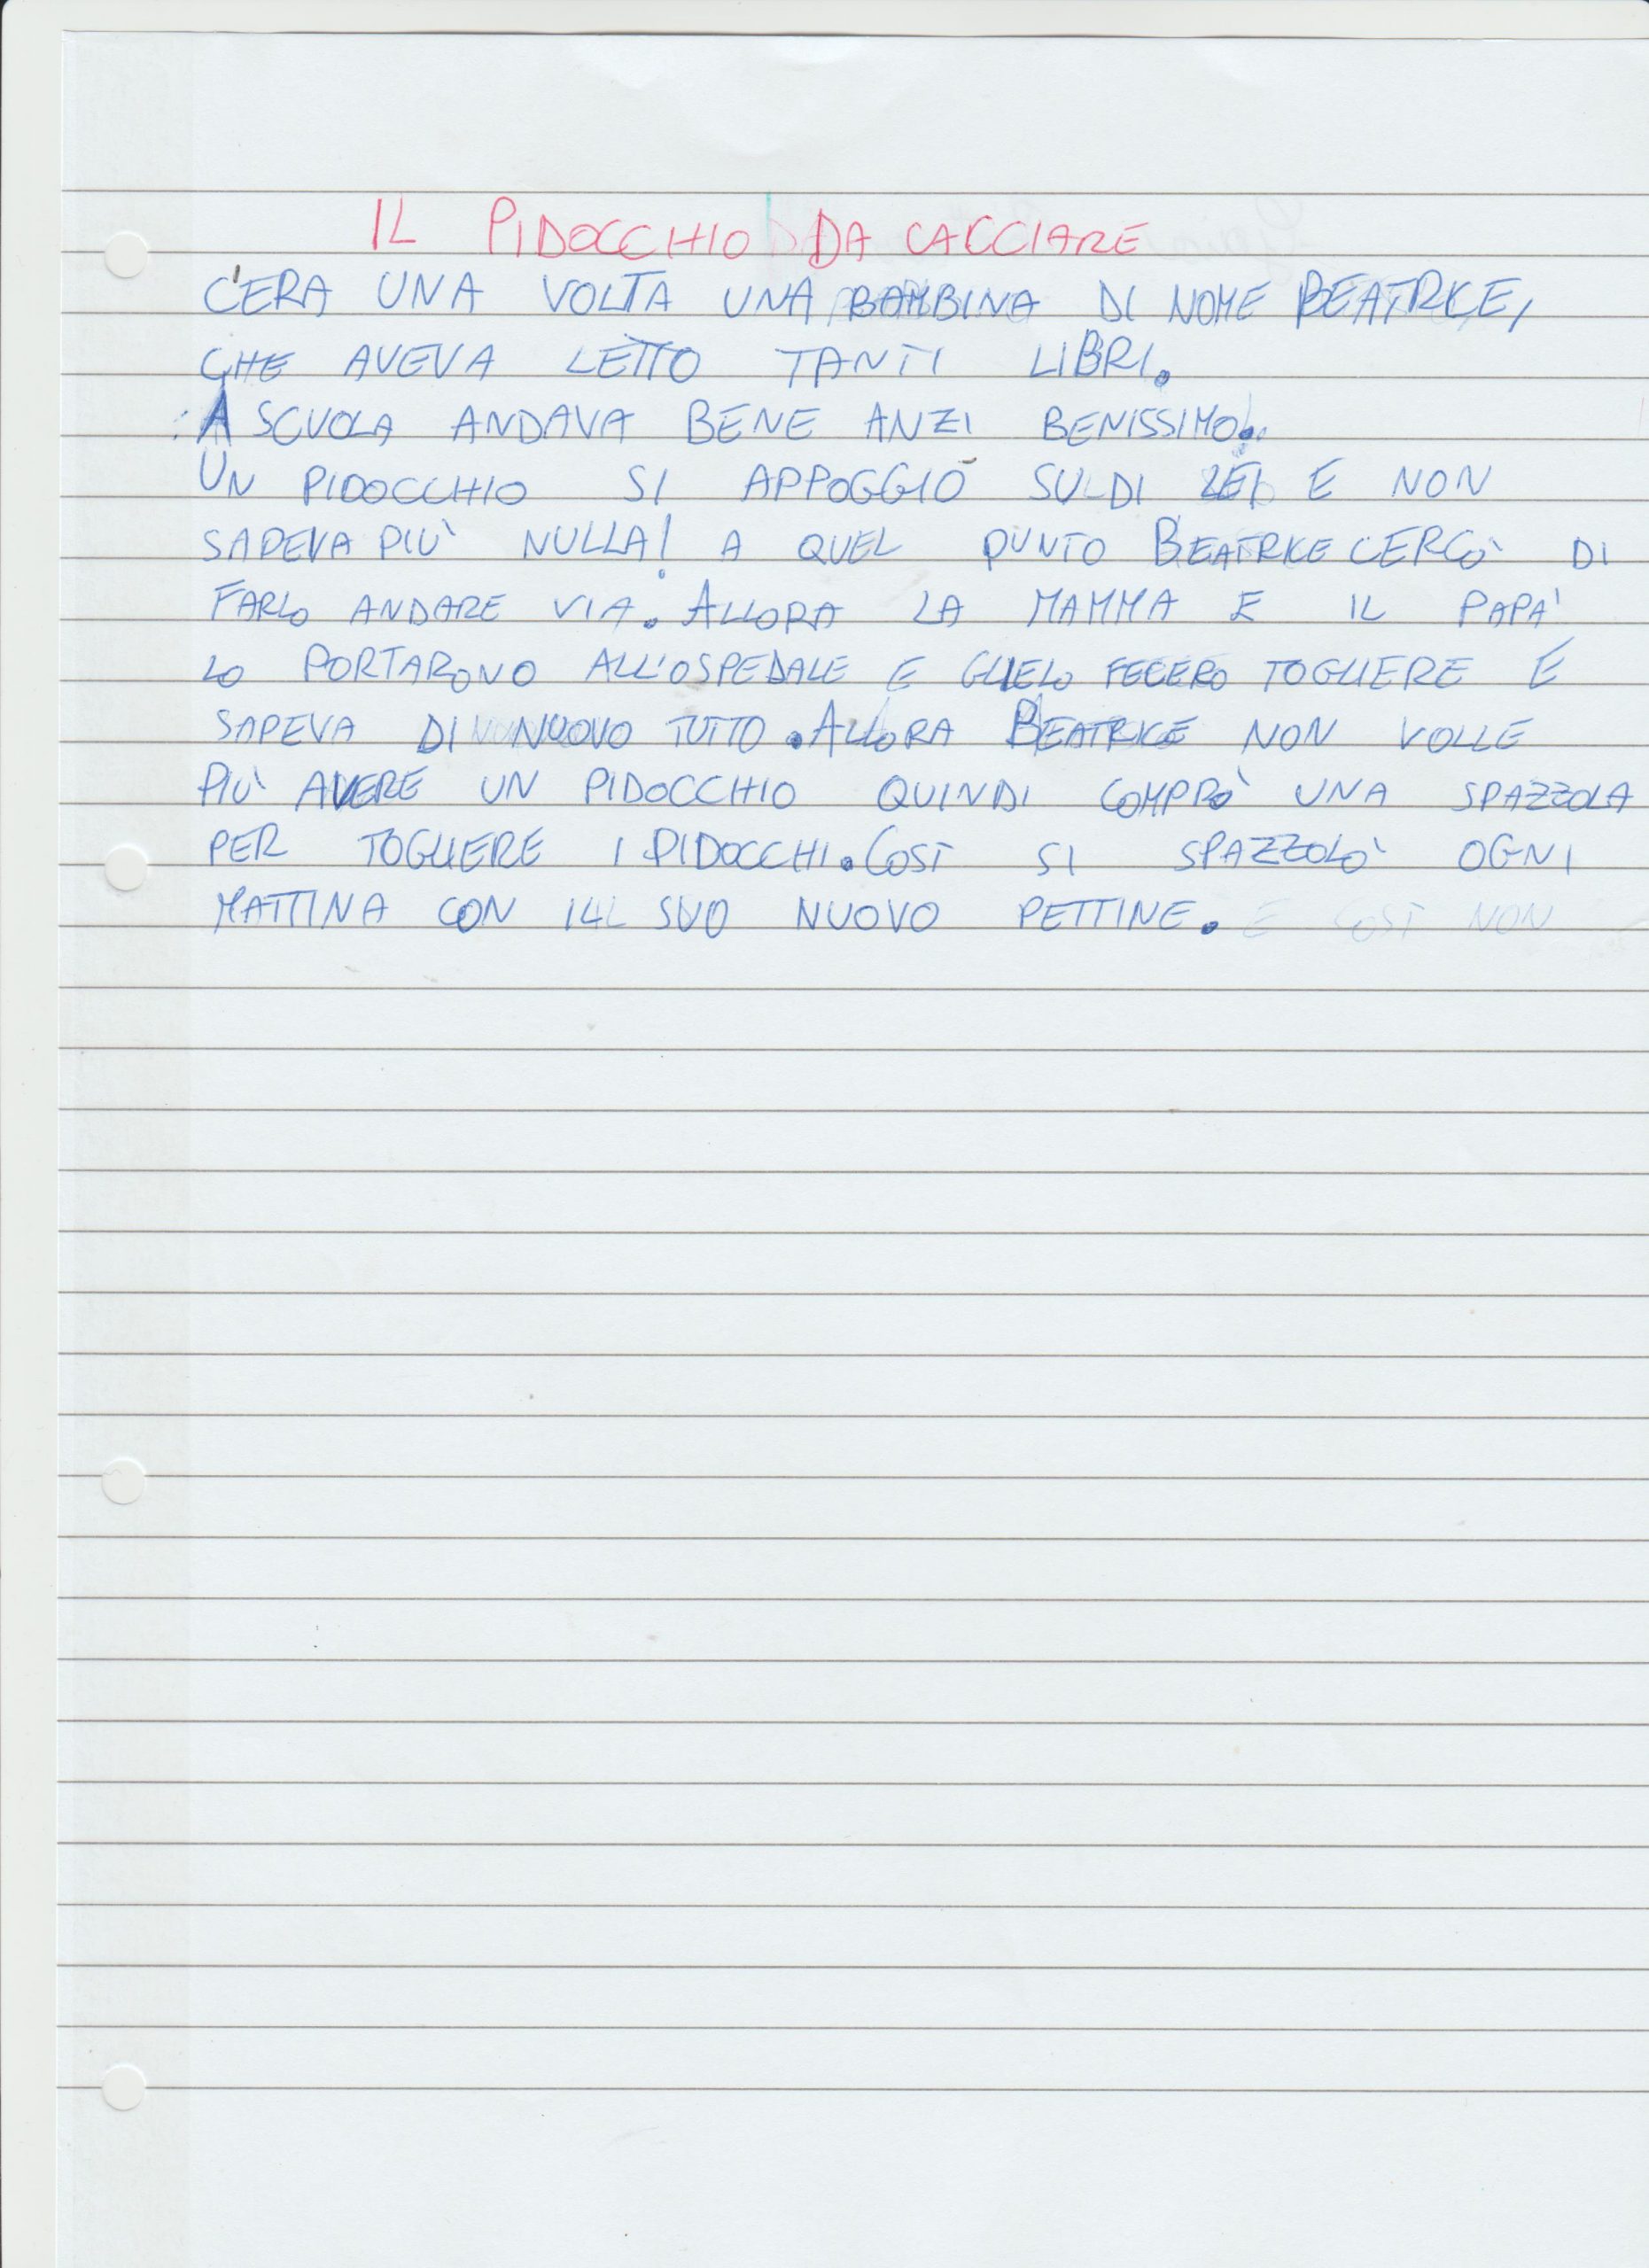 IL PIDOCCHIO DA CACCIARE
C'ERA UNA VOLTA UNA BAMBINA DI NOME BEATRICE,
CHE AVEVA LETTO TANTI LIBRI.
A SCUOLA ANDAVA BENE ANZI BENISSIMO!
UN PIDOCCHIO SI APPOGGIÒ SU DI LEI E NON
SAPEVA PIÙ NULLA! A QUEL PUNTO BEATRICE CERCÒ DI
FARLO ANDARE VIA. ALLORA LA MAMMA E IL PAPA'
LO PORTARONO ALL'OSPEDALE E GLIELO FECERO TOGLIERE E
SAPEVA DI NUOVO TUTTO. ALLORA BEATRICE NON VOLLE
PIÙ AVERE UN PIDOCCHIO QUINDI COMPRÒ UNA SPAZZOLA
PER TOGLIERE I PIDOCCHI. COSÌ SI SPAZZOLÒ OGNI
MATTINA CON IL SUO NUOVO PETTINE. E COSÌ NON